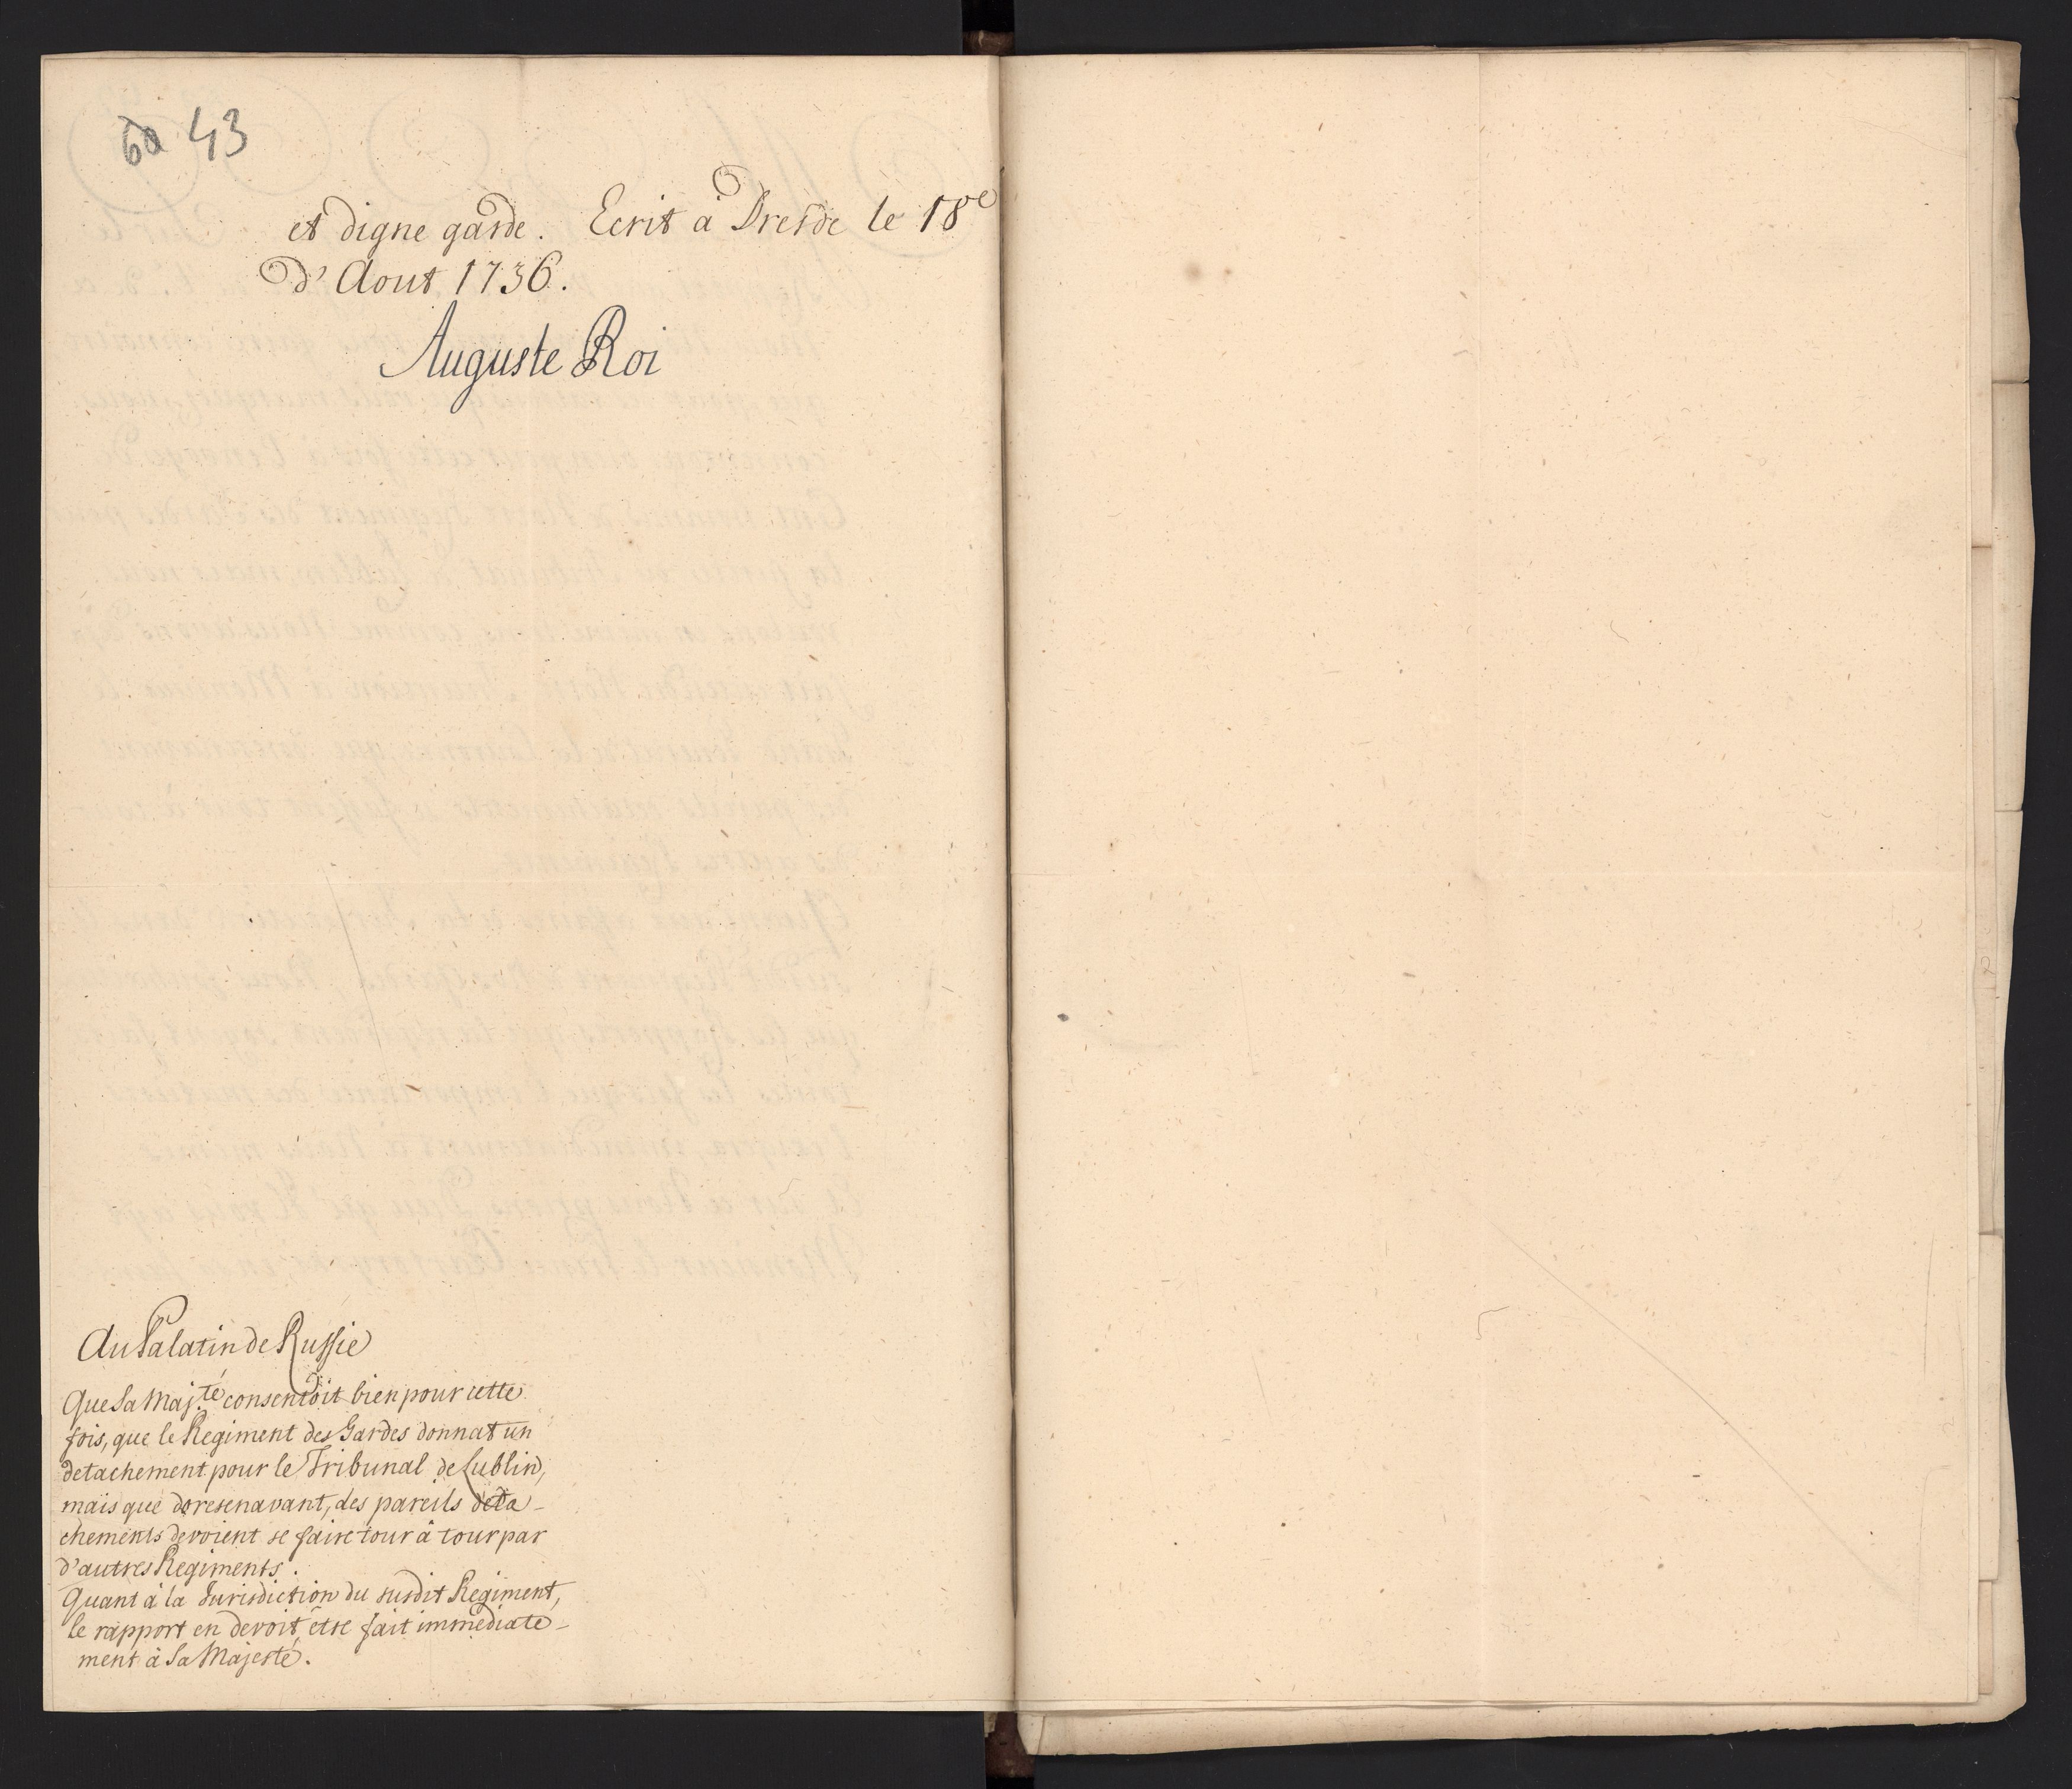 43
et digne garde. Ecrit à Dresde le 18e
d'Aout 1736.
Auguste Roi
Au Palatin de Russie
Que Sa Maj.té consentoit bien pour cette
fois, que le Regiment des Gardes donnat un
detachement pour le Tribunal de Lublin,
mais que doresenavant, des pareils deta-
chements devoient se faire tour à tour par
d'autres Regiments.
Quant à la Jurisdiction du susdit Regiment,
le rapport en devoit être fait immediate-
ment à Sa Majesté.